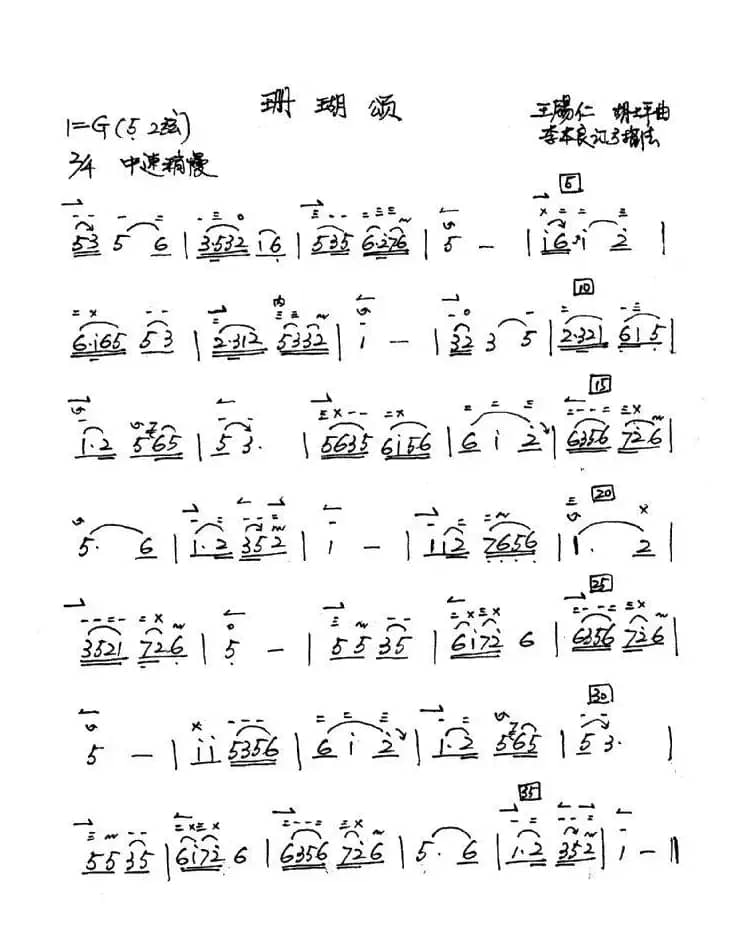 珊瑚颂
1=G(5̣ 2弦)
王锡仁 胡士平曲
李本良订弓指法
2/4 中速稍慢
5
53 5 6 | 3·532 i6 | 535 6·276 | 5 - | i6·i 2̇ |
10
6·i65 53 | 2·312 5332 | i - | 32 3 5 | 2·321 6i5 |
15
i·2 565 | 5 3· | 5635 6i56 | 6 i 2̇ | 6356 726 |
20
5· 6 | i·2 352 | i - | ii2 7656 | 1· 2 |
25
3521 726 | 5 - | 55 35 | 6i72 6 | 6356 726 |
30
5 - | ii 5356 | 6 i 2̇ | i·2 565 | 5 3· |
35
55 35 | 6i72 6 | 6356 726 | 5· 6 | 1·2 352 | i - ‖